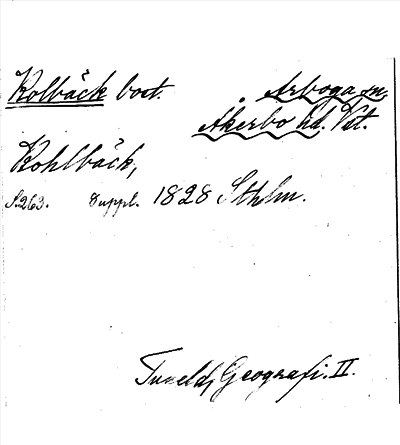 Kolbäck bost. Arboga sn,
Åkerbo hd. Vstm.
Kohlbäck,
S.263. Suppl. 1828 Sthlm.
Tuneld, Geografi. II.